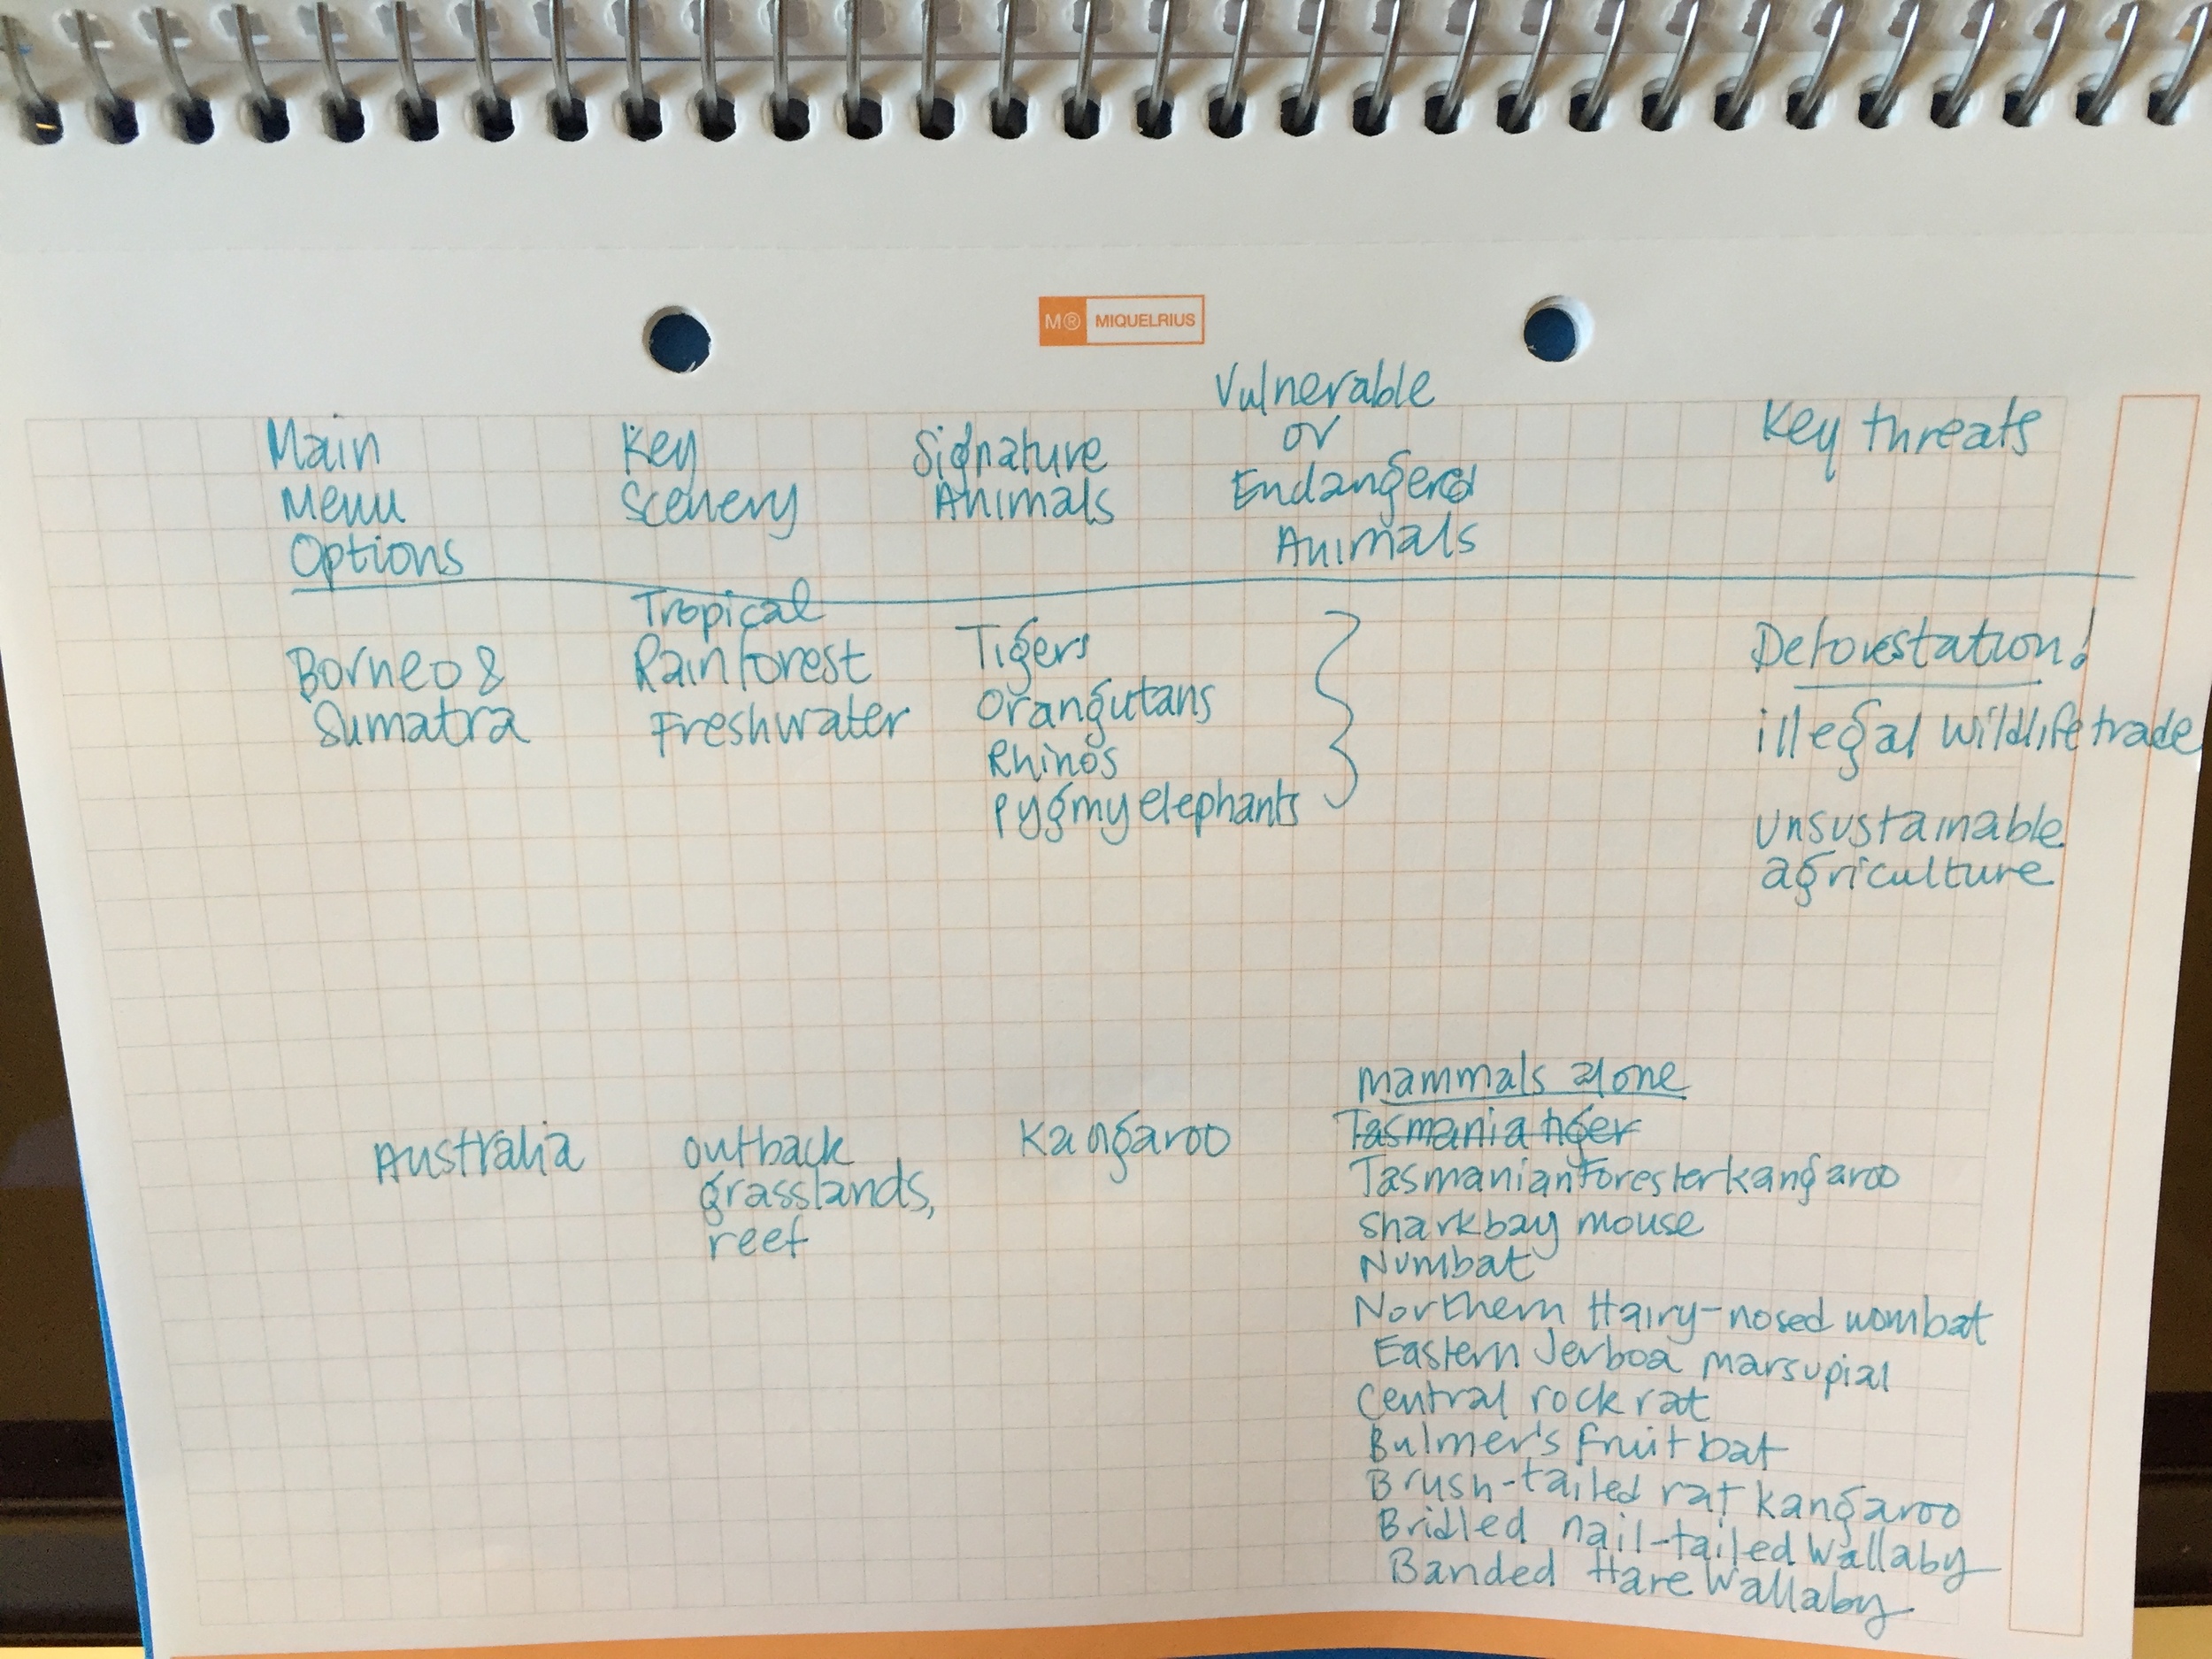 M® MIQUELRIUS
Main
Menu
Options
Key
Scenery
Signature
Animals
Vulnerable
or
Endangered
Animals
Key threats
Borneo &
Sumatra
Tropical
Rainforest
Freshwater
Tigers
Orangutans
Rhinos
pygmy elephants
Deforestation!
illegal wildlife trade
unsustainable
agriculture
Australia
outback
grasslands,
reef
Kangaroo
mammals alone
Tasmania tiger
Tasmanian Forester kangaroo
shark bay mouse
Numbat
Northern Hairy-nosed wombat
Eastern Jerboa marsupial
Central rock rat
Bulmer's fruit bat
Brush-tailed rat kangaroo
Bridled nail-tailed Wallaby
Banded Hare Wallaby